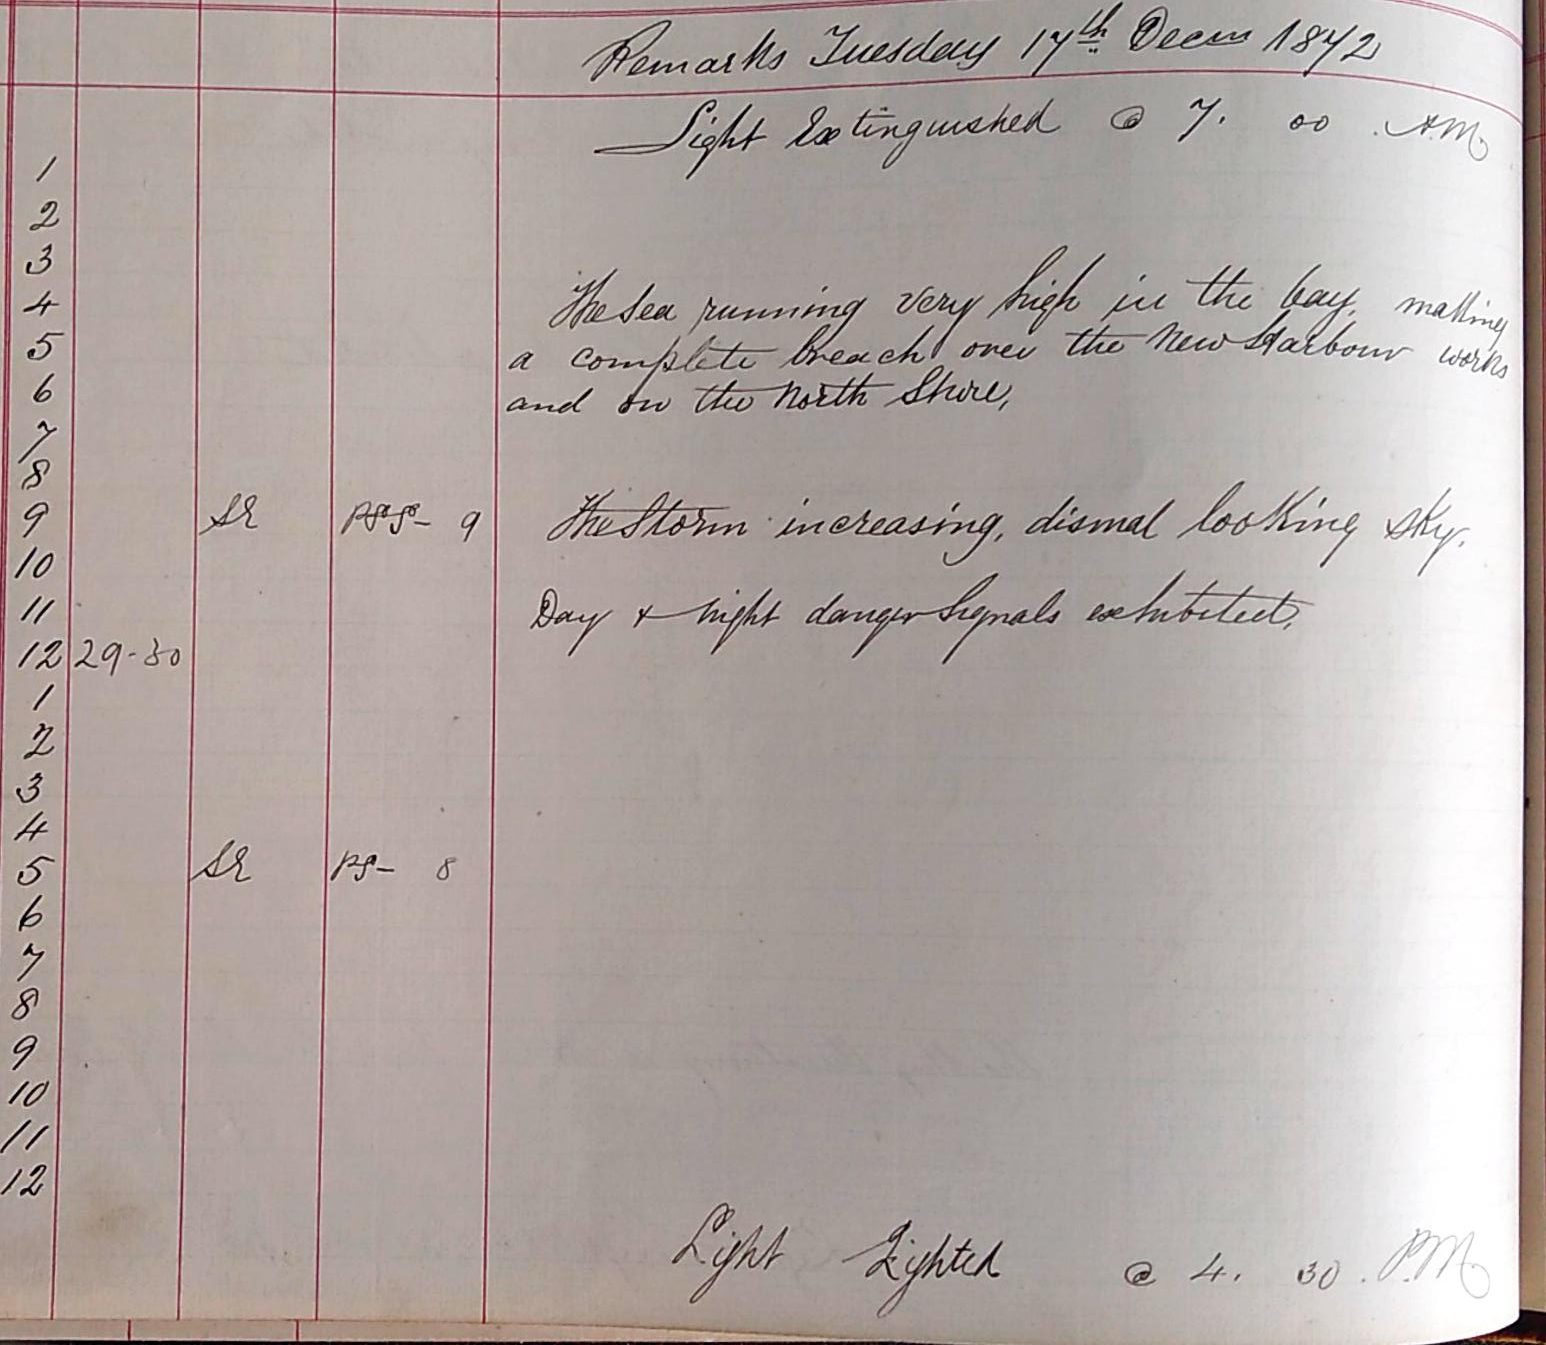 Remarks Tuesday 17th Decem 1872
Light Extinguished @ 7. 00 . A.M.
1
2
3
4 The Sea running very high in the bay, making
5 a complete breach over the New Harbour works
6 and on the North Shore,
7
8
9 SE 9 The Storm increasing, dismal looking sky.
10
11 Day & night danger Signals exhibited,
12 29-30
1
2
3
4
5 SE PS- 8
6
7
8
9
10
11
12
Light Lighted @ 4. 30 . P.M.